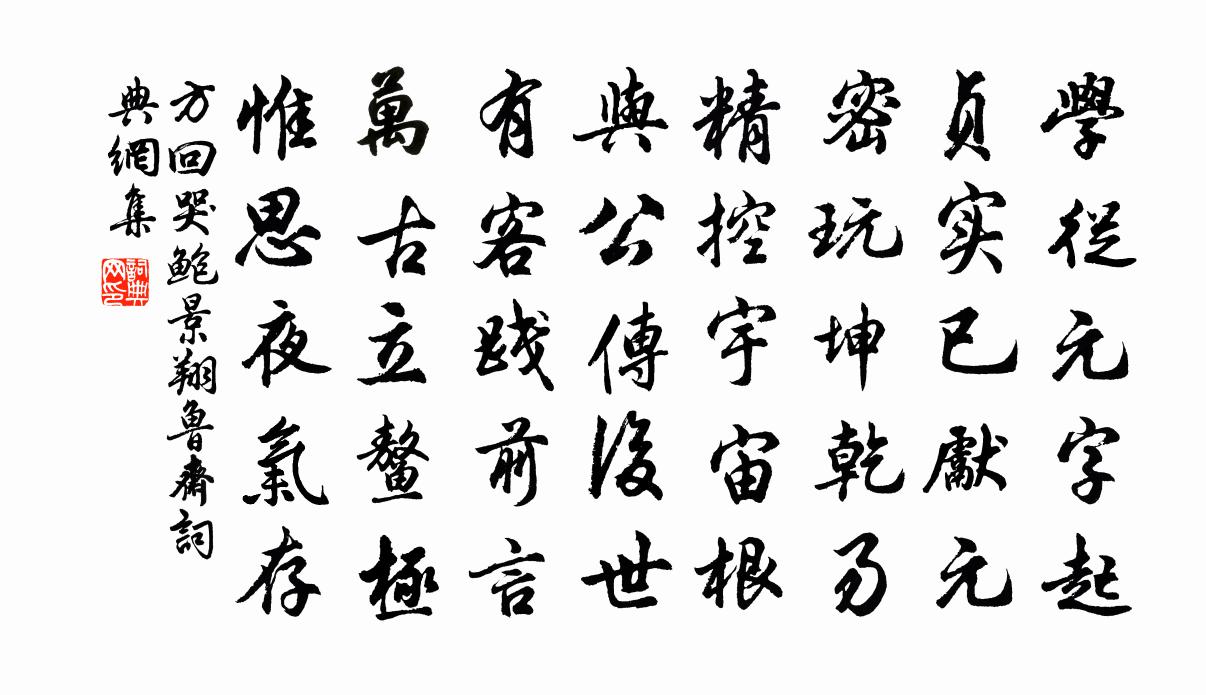 學從元字起
貞实已獻元
密玩坤乾易
精控宇宙根
與公傳後世
有客践前言
萬古立鰲極
惟思夜氣存
方回哭鮑景翔魯齋詞
典網集
詞典网印